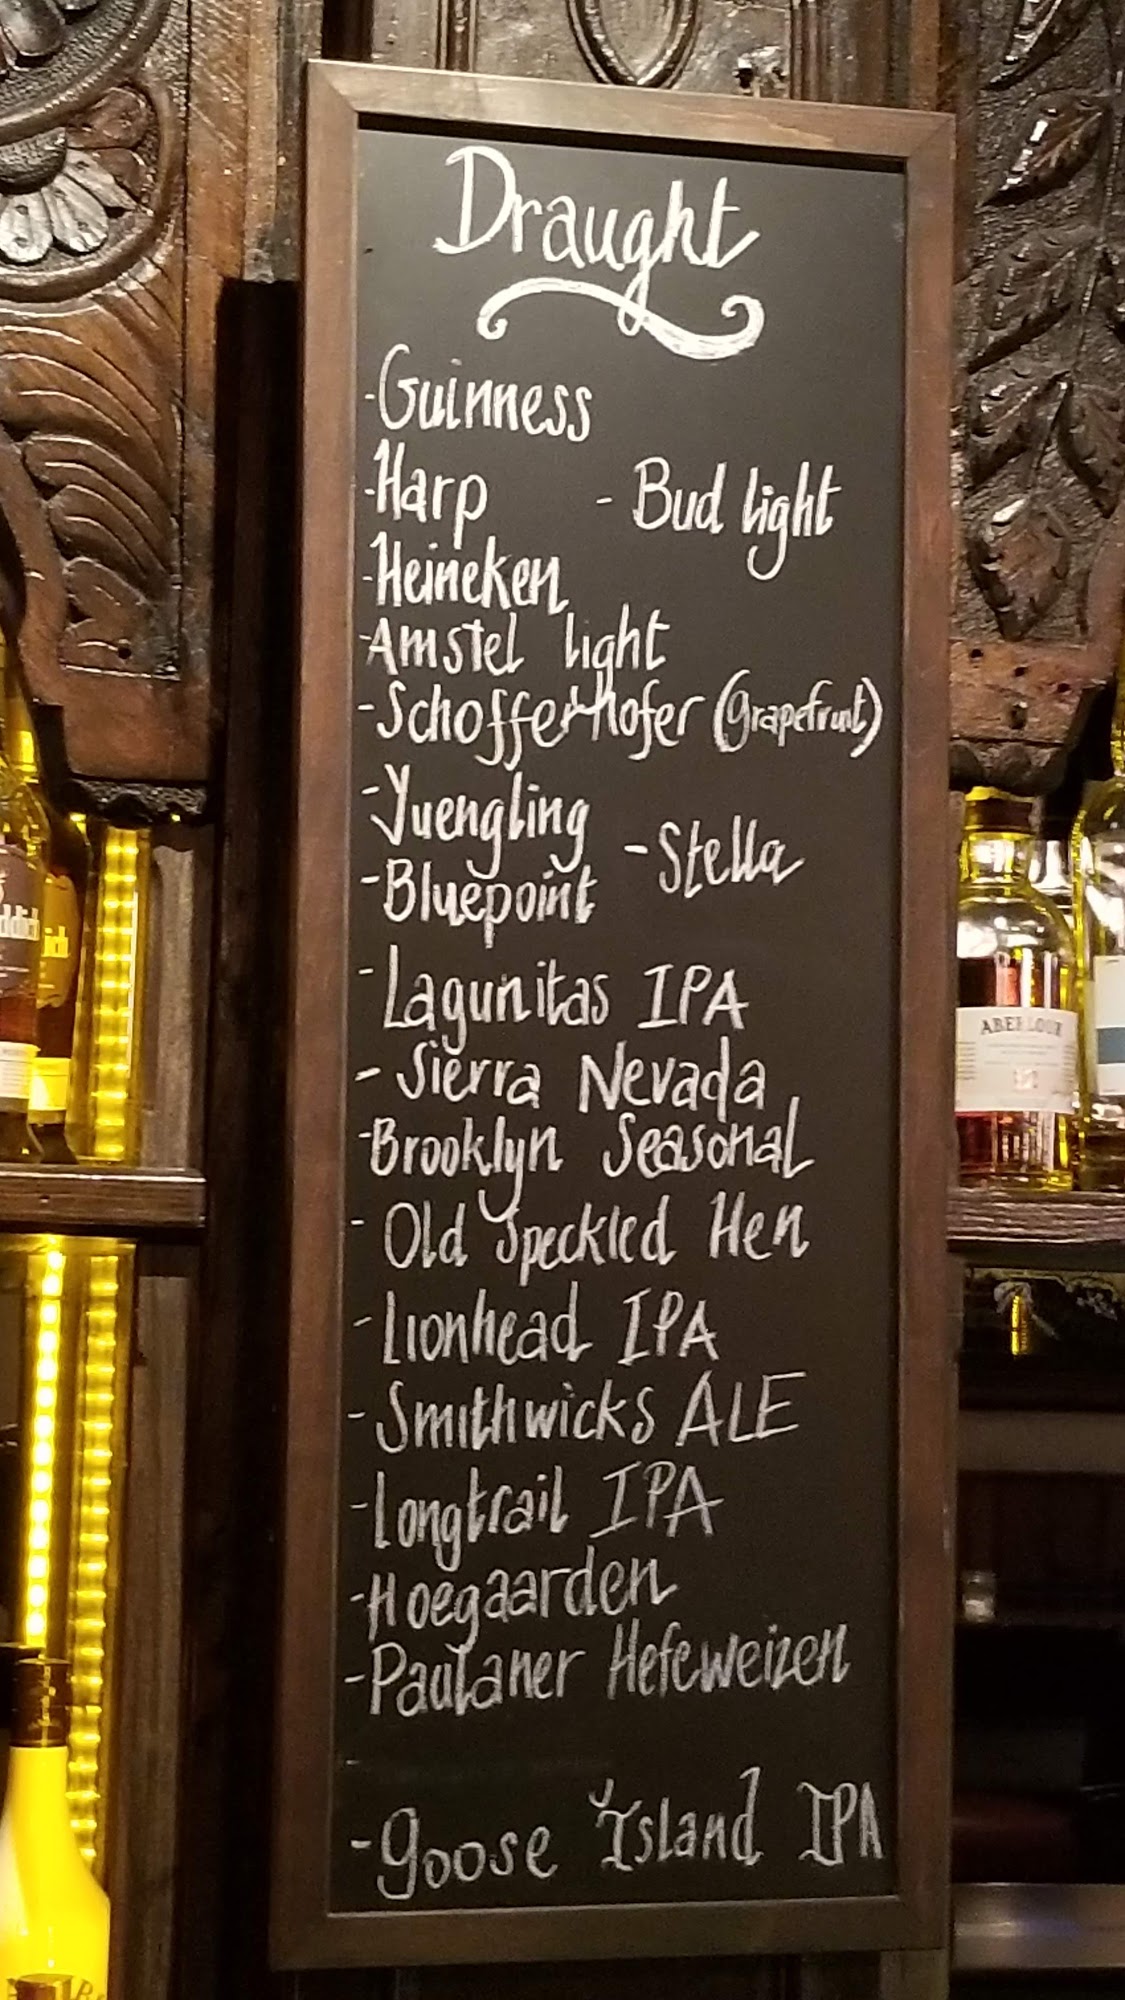 Draught
-Guinness
-Harp - Bud light
-Heineken
-Amstel light
-Schofferhofer (grapefruit)
-Yuengling
-Stella
-Bluepoint
-Lagunitas IPA
-Sierra Nevada
-Brooklyn Seasonal
-Old Speckled Hen
-Lionhead IPA
-Smithwicks ALE
-Longtrail IPA
-Hoegaarden
-Paulaner Hefeweizen
-goose Island IPA
ABERLOUR